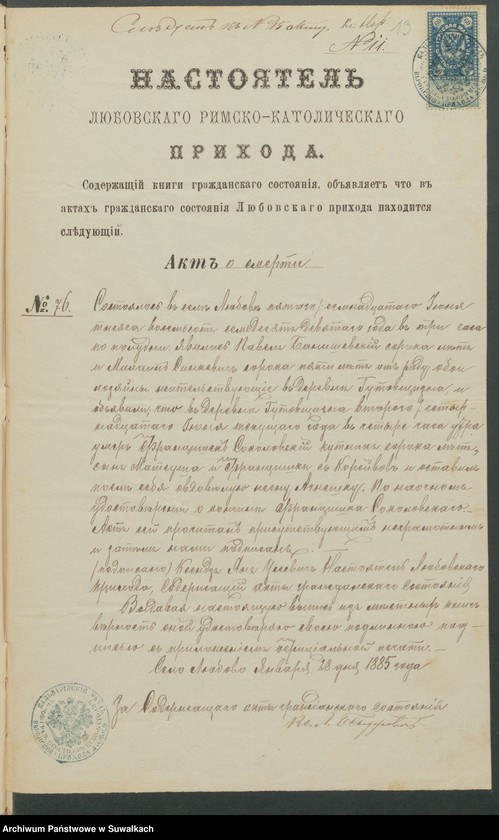 Слѣдуетъ къ № акту. Кс. 13
№ 11.
НАСТОЯТЕЛЬ
ЛЮБОВСКАГО РИМСКО-КАТОЛИЧЕСКАГО
ПРИХОДА.
Содержащій книги гражданскаго состоянія, объявляетъ что въ
актахъ гражданскаго состоянія Любовскаго прихода находится
слѣдующій.
Актъ о смерти
№ 76. Состоялось въ селѣ Любовѣ пятаго / семнадцатаго Іюня
тысяча восемьсотъ семьдесятъ девятаго года въ три часа
по полудни. Явились Павелъ сорока лѣтъ
и сорока пяти лѣтъ отъ роду оба
хозяины жительствующіе въ деревни и
объявили, что въ деревни втораго / четыр-
надцатаго Іюня текущаго года въ четыре часа утра
умеръ Францишекъ Соколовскій сорока лѣтъ,
сынъ Матеуша и Францишки съ и оставилъ
послѣ себя овдовѣлую жену Агнешку. По наочномъ
удостовѣреніи о кончинѣ Францишка Соколовскаго.
Актъ сей прочитанъ присутствующимъ неграмотнымъ
и затѣмъ нами подписанъ.
(подписано) Ксендзъ Янъ Настоятель Любовскаго
прихода, Содержащій акты гражданскаго состоянія
Выдавая настоящую выпись изъ
вѣрность оной удостовѣряю своею подлинною под-
писью съ приложеніемъ оффиціальной печати.
Село Любово Января 28 дня 1885 года
За Содержащаго акты гражданскаго состоянія
Кс. А.
Archiwum Państwowe w Suwałkach